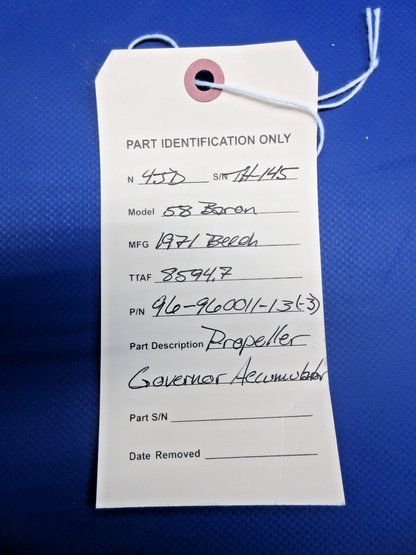 PART IDENTIFICATION ONLY
N 45D S/N TH-145
Model 58 Baron
MFG 1971 Beech
TTAF 8594.7
P/N 96-960011-13(-3)
Part Description Propeller
Governor Accumulator
Part S/N
Date Removed